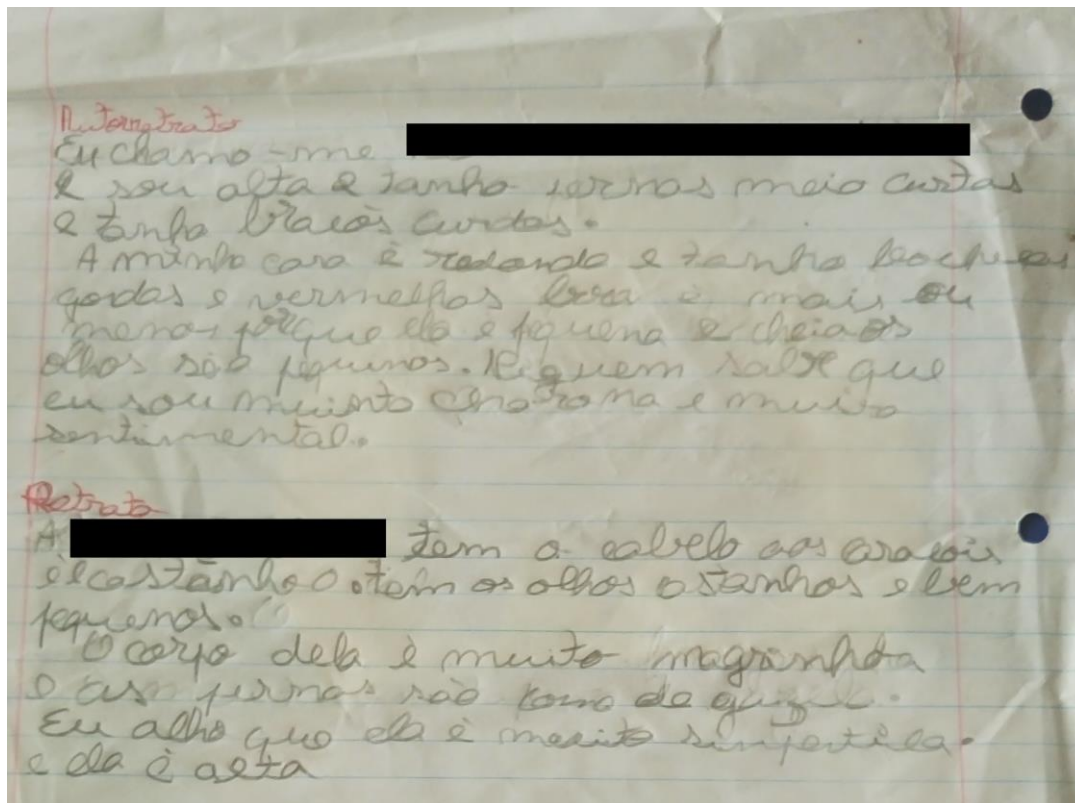 Autorretrato
Eu chamo-me
e sou alta e tanho pernas meio curtas
e tanho bracòs curdos.
A minha cara è redonda e tanho bochecas
gordas e vermelhas boca è mais ou
menos porque ela è pequena e cheia os
olhos são pequenos. quem sabe que
eu sou muinto chorona e muito
sentimental.
Retrato
A tem o cabelo aos aracois
è castanho o. tem os olhos castanhos e bem
pequenos.
O corpo dela è muito magrinhota
e as pernas são como de
Eu alho que ela è muito
e ela è alta